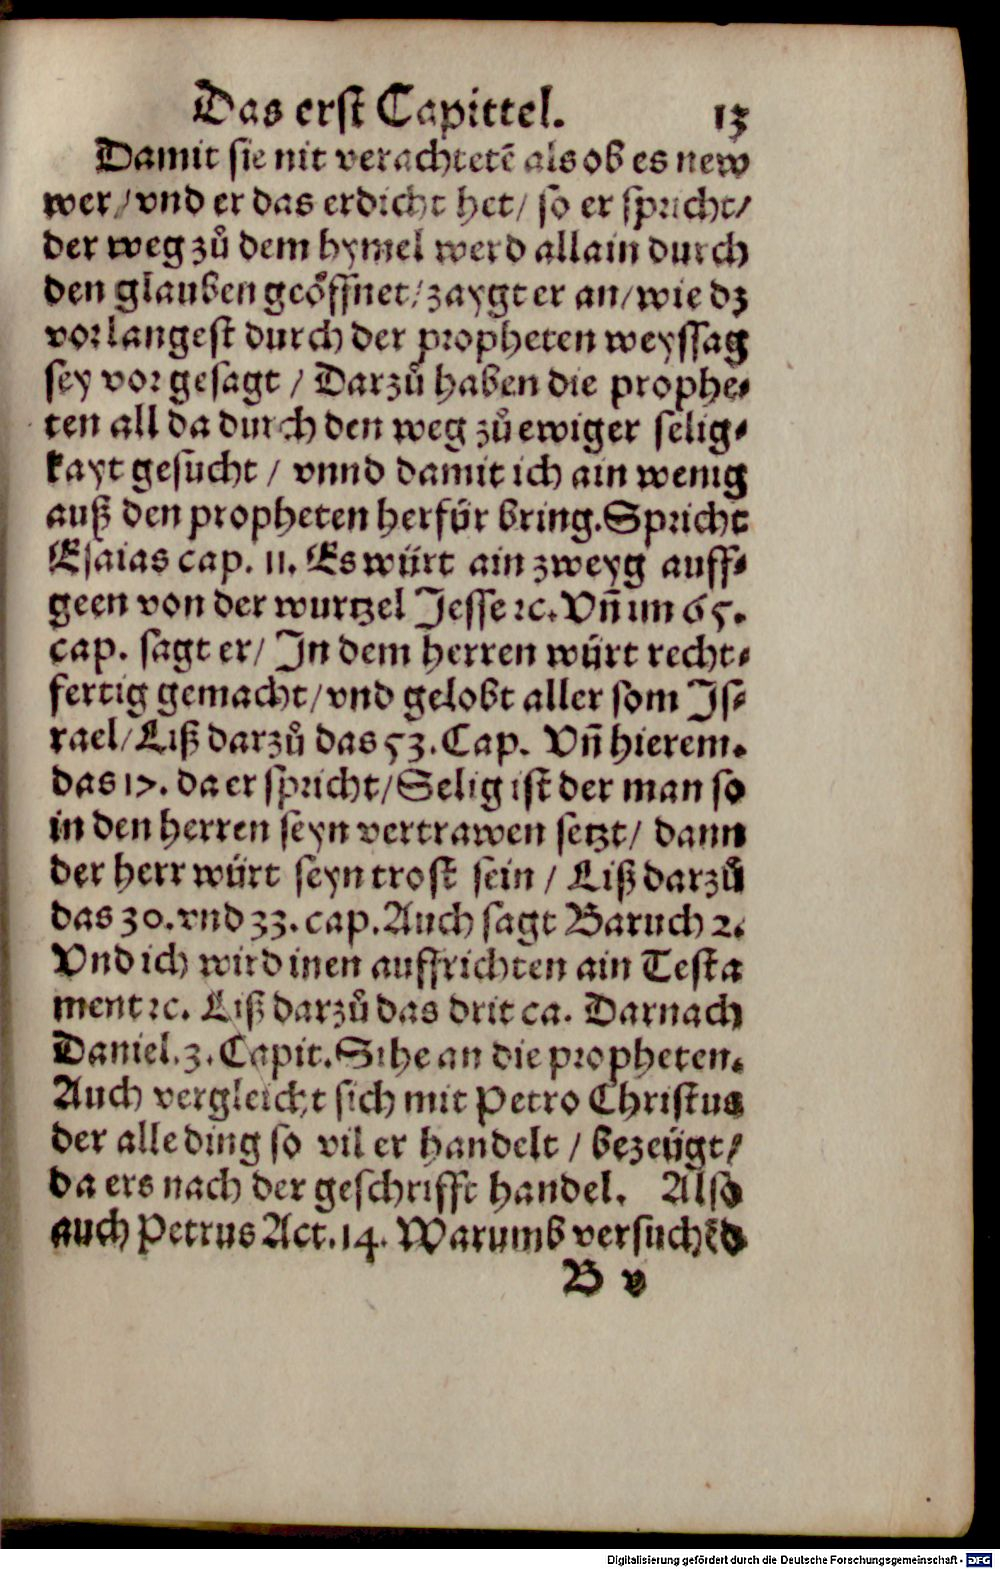 Das erst Capittel. 13
Damit sie nit verachtetē als ob es new
wer / vnd er das erdicht het / so er spricht /
der weg zů dem hymel werd allain durch
den glauben geöffnet / zaygt er an / wie dz
vorlangest durch der propheten weyssag
sey vor gesagt / Darzů haben die prophe⸗
ten all da durch den weg zů ewiger selig⸗
kayt gesucht / vnnd damit ich ain wenig
auß den propheten herfür bring. Spricht
Esaias cap. 11. Es würt ain zweyg auff⸗
geen von der wurtzel Jesse ꝛc. Vñ im 65.
cap. sagt er / In dem herren würt recht⸗
fertig gemacht / vnd gelobt aller som Is⸗
rael / Liß darzů das 53. Cap. Vñ hierem.
das 17. da er spricht / Selig ist der man so
in den herren seyn vertrawen setzt / dann
der herr würt seyn trost sein / Liß darzů
das 30. vnd 33. cap. Auch sagt Baruch 2.
Vnd ich wird inen auffrichten ain Testa
ment ꝛc. Liß darzů das drit ca. Darnach
Daniel. 3. Capit. Sihe an die propheten.
Auch vergleicht sich mit Petro Christus
der alle ding so vil er handelt / bezeügt /
da ers nach der geschrifft handel. Also
auch Petrus Act. 14. Warumb versuchēd
B v
Digitalisierung gefördert durch die Deutsche Forschungsgemeinschaft - DFG